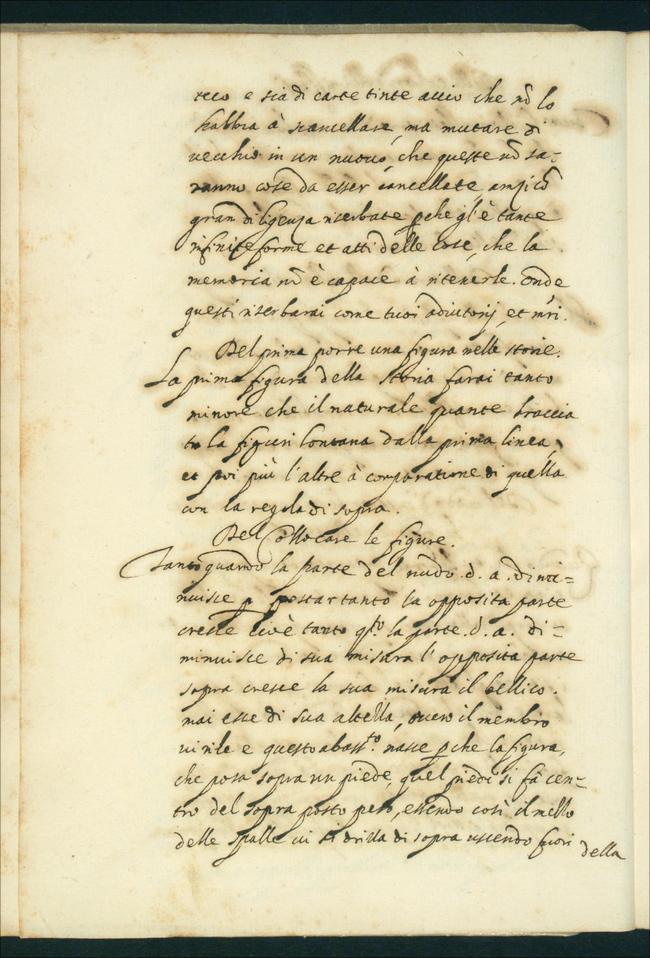 teco e sia di carte tinte accio che nõ lo
habbia à scancellare, ma mutare di
vecchio in un nuovo, che queste nõ sa-
ranno cose da esser cancellate anzi cõ
gran diligenza riserbate pche gl'è tante
infinite forme et atti delle cose, che la
memoria nõ è capace à ritenerle. onde
questi riserbarai come tuoi adiutorij, et mri.
Del prima porre una figura nelle storie.
La prima figura della storia farai tanto
minore che il naturale quante braccia
tu la figuri lontana dalla prima linea,
et poi più l'altre à comparatione di quella
con la regola di sopra.
Del collocare le figure.
Tanto quando la parte del nudo .d. a. dimi=
nuisce p postar tanto la opposita parte
cresce cioè tanto qto la parte .d. a. di=
minuisce di sua misura l'opposita parte
sopra cresce la sua misura il bellico.
mai esce di sua altezza, overo il membro
virile e questo abassto. nasce pche la figura,
che posa sopra un piede, quel piedi si fà cen-
tro del sopra posto peso, essendo così il mezzo
delle spalle vi si drizza di sopra uscendo fuori
della